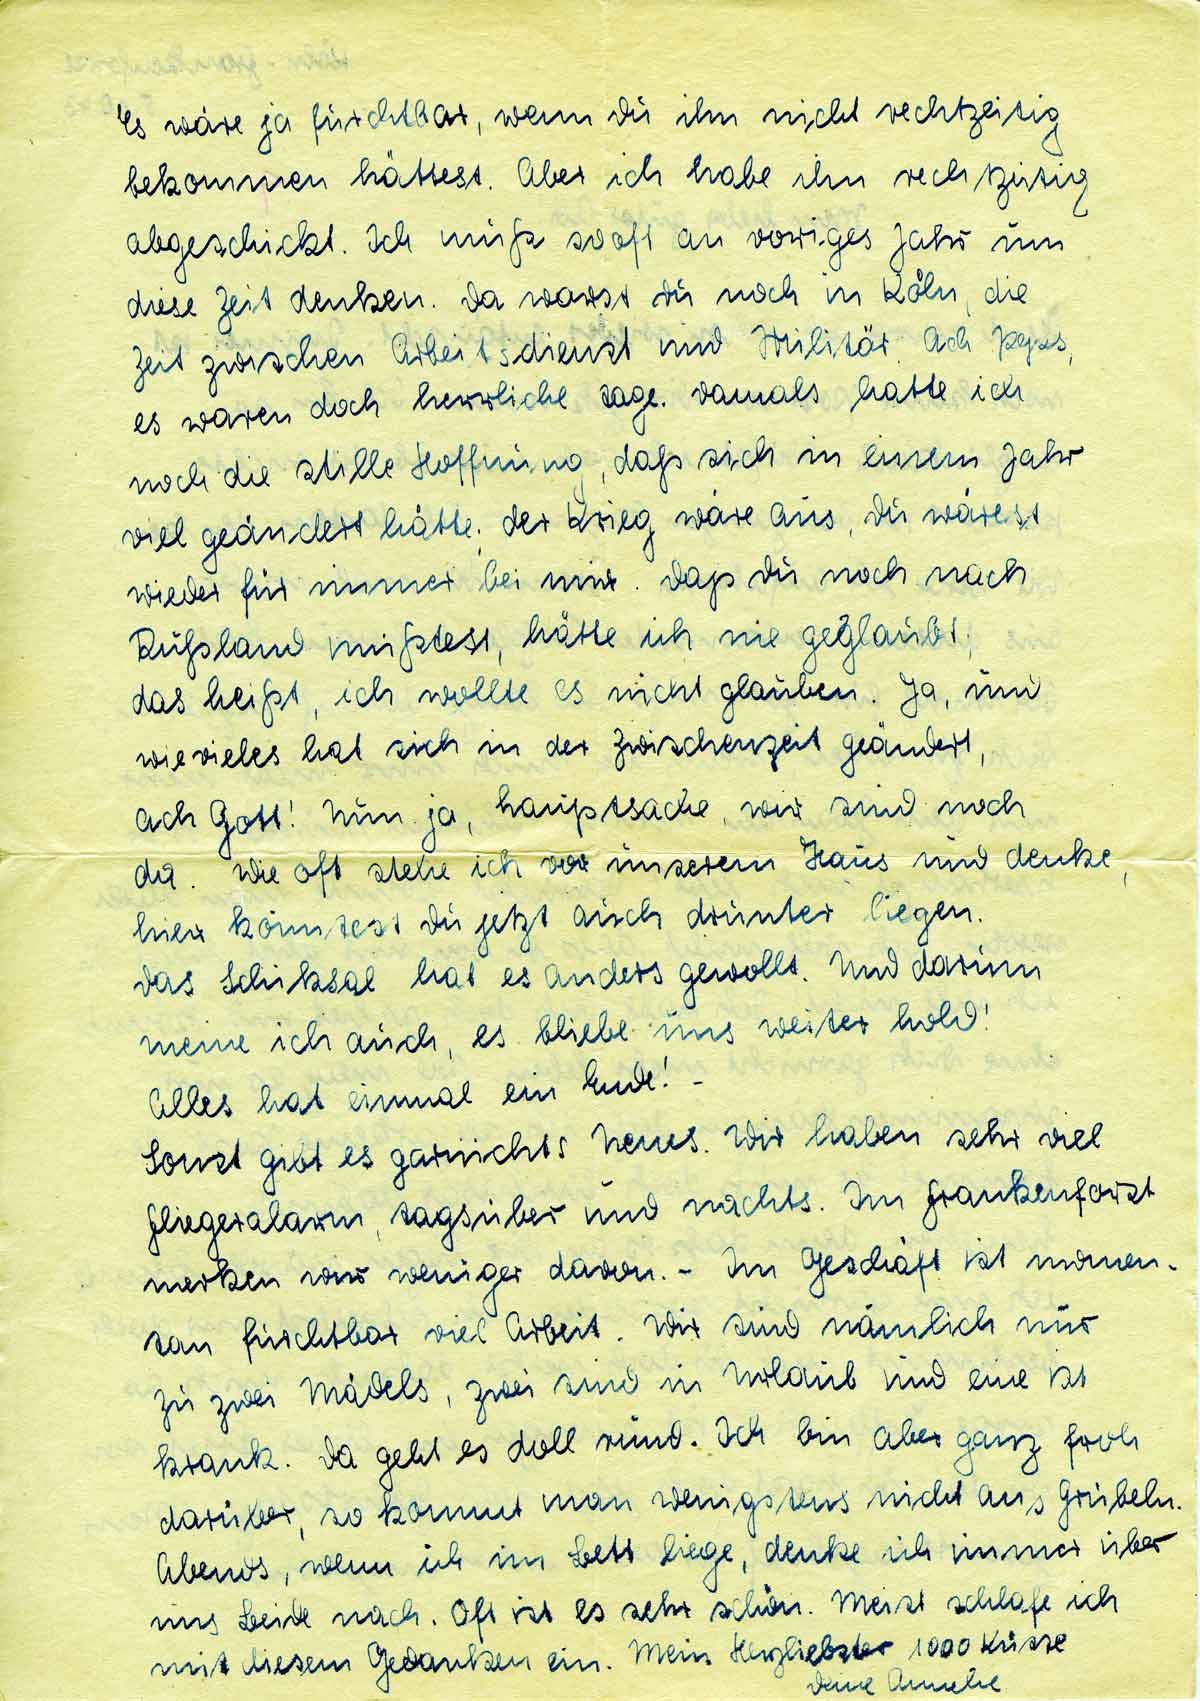 Es wäre ja fürchtbar, wenn du ihn nicht rechtzeitig
bekommen hättest. Aber ich habe ihn rechtzeitig
abgeschickt. Ich muß so oft an voriges Jahr um
diese Zeit denken. Da warst du noch in Köln, die
Zeit zwischen Arbeitsdienst und Militär. Ach
es waren doch herrliche Tage. Damals hatte ich
noch die stille Hoffnung, daß sich in einem Jahr
viel geändert hätte. der Krieg wäre aus, du wärest
wieder für immer bei mir. Daß du noch nach
Rußland mußtest, hätte ich nie geglaubt,
das heißt, ich wollte es nicht glauben. Ja, und
wievieles hat sich in der Zwischenzeit geändert,
ach Gott! Nun ja, hauptsache, wir sind noch
da. Wie oft stehe ich vor unserem Haus und denke,
hier könntest du jetzt auch drunter liegen.
Das Schiksal hat es anders gewollt. Und darum
meine ich auch, es bliebe uns weiter hold!
Alles hat einmal ein Ende! -
Sonst gibt es garnichts Neues. Wir haben sehr viel
Fliegeralarm, tagsüber und nachts. Im Frankenforst
merken wir weniger davon. - Im Geschäft ist momen-
tan fürchtbar viel Arbeit. Wir sind nämlich nur
zu zwei Mädels, zwei sind in Urlaub und eine ist
krank. Da geht es doll rund. Ich bin aber ganz froh
darüber, so kommt man wenigstens nicht ans Grübeln.
Abends, wenn ich im Bett liege, denke ich immer über
uns beide nach. Oft ist es sehr schön. Meist schlafe ich
mit diesem Gedanken ein. Mein Herzliebster 1000 Küsse
deine Annelie